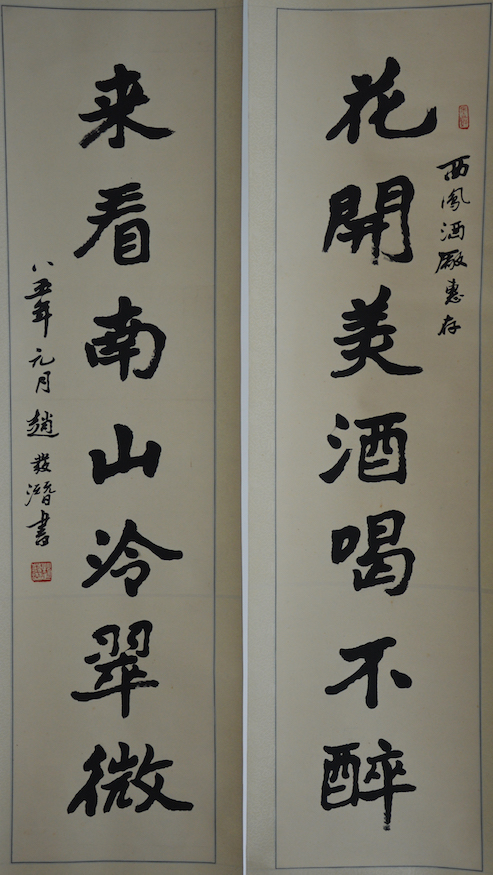 西鳳酒厰惠存
花開美酒喝不醉
来看南山冷翠微
八五年元月趙發潛書